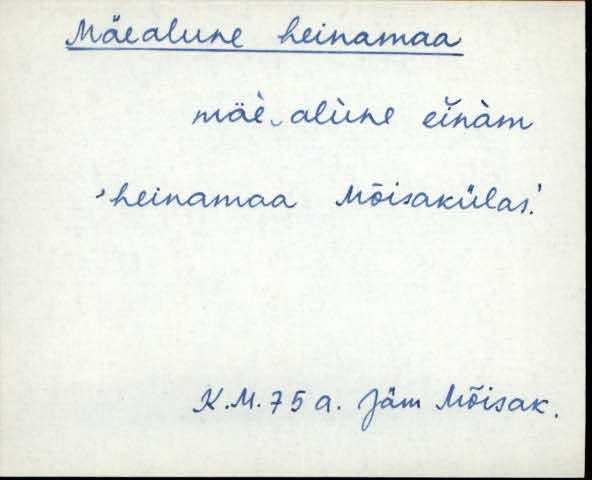 Mäealune heinamaa
mäè‿alùne eĭnàm
'heinamaa Mõisakülas.'
K.M. 75 a. Jäm Mõisak.